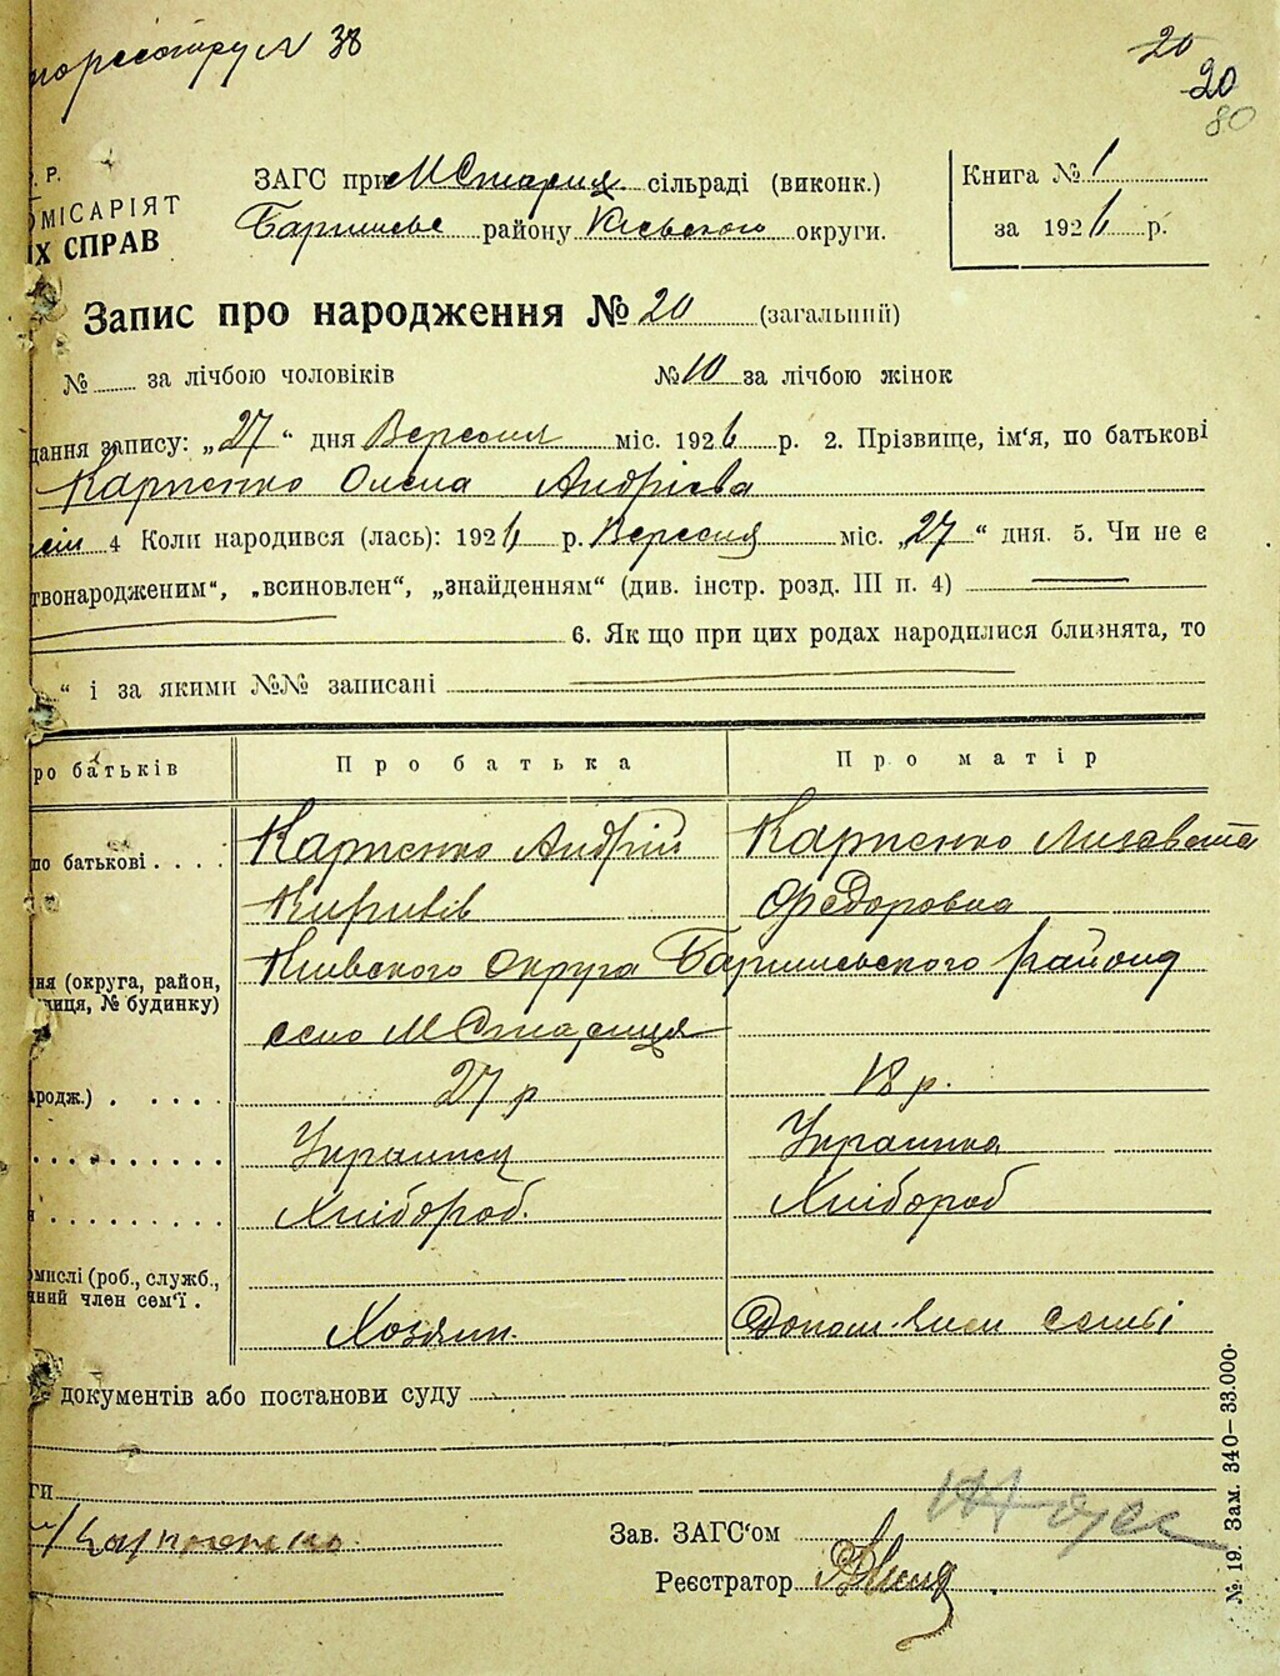 по реєстру N 38
20
20
80
. Р.
ОМІСАРІЯТ
ІХ СПРАВ
ЗАГС при М Стариця сільраді (виконк.)
Баришевс району Київского округи.
Книга № 1
за 1926 р.
Запис про народження № 20 (загальний)
№ за лічбою чоловіків № 10 за лічбою жінок
дання запису: „27“ дня Вересня міс. 1926 р. 2. Прізвище, ім‘я, по батькові
Карпенко Олена Андрієва
4 Коли народився (лась): 1926 р. Вересня міс. „27“ дня. 5. Чи не є
твонародженим“, „всиновлен“, „знайденням“ (див. інстр. розд. III п. 4)
6. Як що при цих родах народилися близнята, то
“ і за якими №№ записані
ро батьків Про батька Про матір
по батькові . . . . Карпенко Андрій Карпенко Лизавета
Кирилів Федоровна
ня (округа, район, Київского Округа Баришевського Району
лиця, № будинку)
село М Стариця
ародж.) . . . . . 27 р 18 р.
Украинец Украинка
Хлібороб. Хлібороб
омислі (роб., служб.,
нний член сем‘ї .
Хозяин. Допом. член семьі
документів або постанови суду
ги
Карпенко
Зав. ЗАГС‘ом
Реєстратор
№ 19. Зам. 340—33.000.